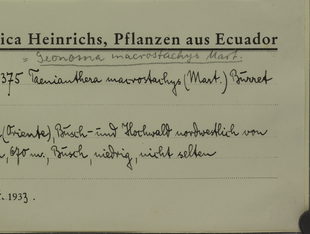 ica Heinrichs, Pflanzen aus Ecuador
= Geonoma macrostachys Mart.
375 Taenianthera macrostachys (Mart.) Burret
(Oriente), Busch- und Hochwald nordwestlich von
670 m, Busch, niedrig, nicht selten
. 1933.